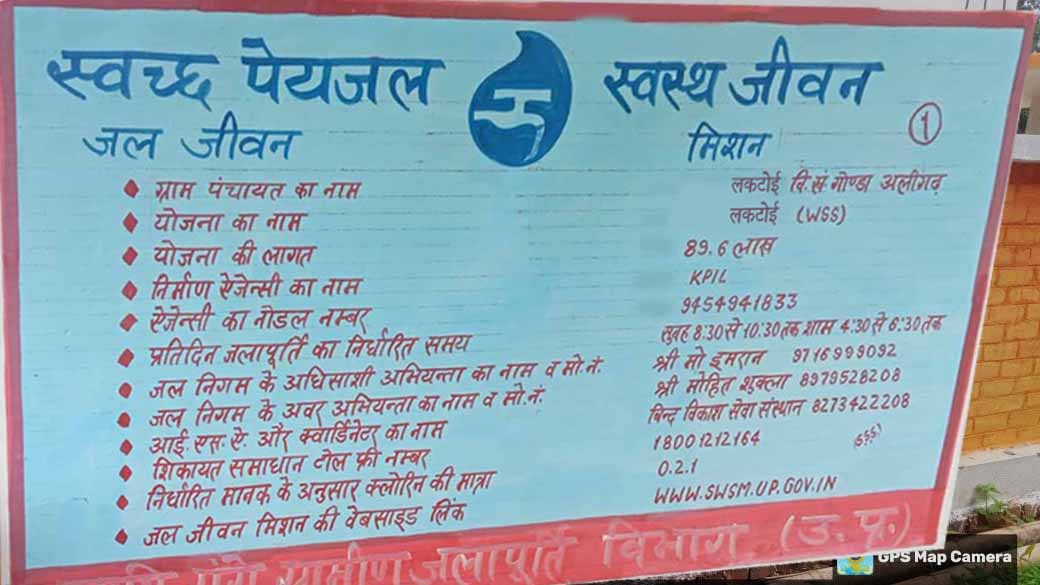 स्वच्छ पेयजल स्वस्थ जीवन
जल जीवन मिशन
1
ग्राम पंचायत का नाम लकटोई वि.सं. गोण्डा अलीगढ़
योजना का नाम लकटोई (WSS)
योजना की लागत 89.6 लाख
निर्माण ऐजेन्सी का नाम KPIL
ऐजेन्सी का नोडल नम्बर 9454941833
प्रतिदिन जलापूर्ति का निर्धारित समय सुबह 8:30 से 10:30 तक शाम 4:30 से 6:30 तक
जल निगम के अधिसाशी अभियन्ता का नाम व मो.नं. श्री मो इमरान 9716999092
जल निगम के अवर अभियन्ता का नाम व मो.नं. श्री मोहित शुक्ला 8979528208
आई.एस.ऐ. और क्वार्डिनेटर का नाम बिन्द विकाश सेवा संस्थान 8273422208
शिकायत समाधान टोल फ्री नम्बर 18001212164
निर्धारित मानक के अनुसार क्लोरिन की मात्रा 0.2.1
जल जीवन मिशन की वेबसाइड लिंक WWW.SWSM.UP.GOV.IN
ग्रामीण जलापूर्ति विभाग (उ.प्र.)
GPS Map Camera